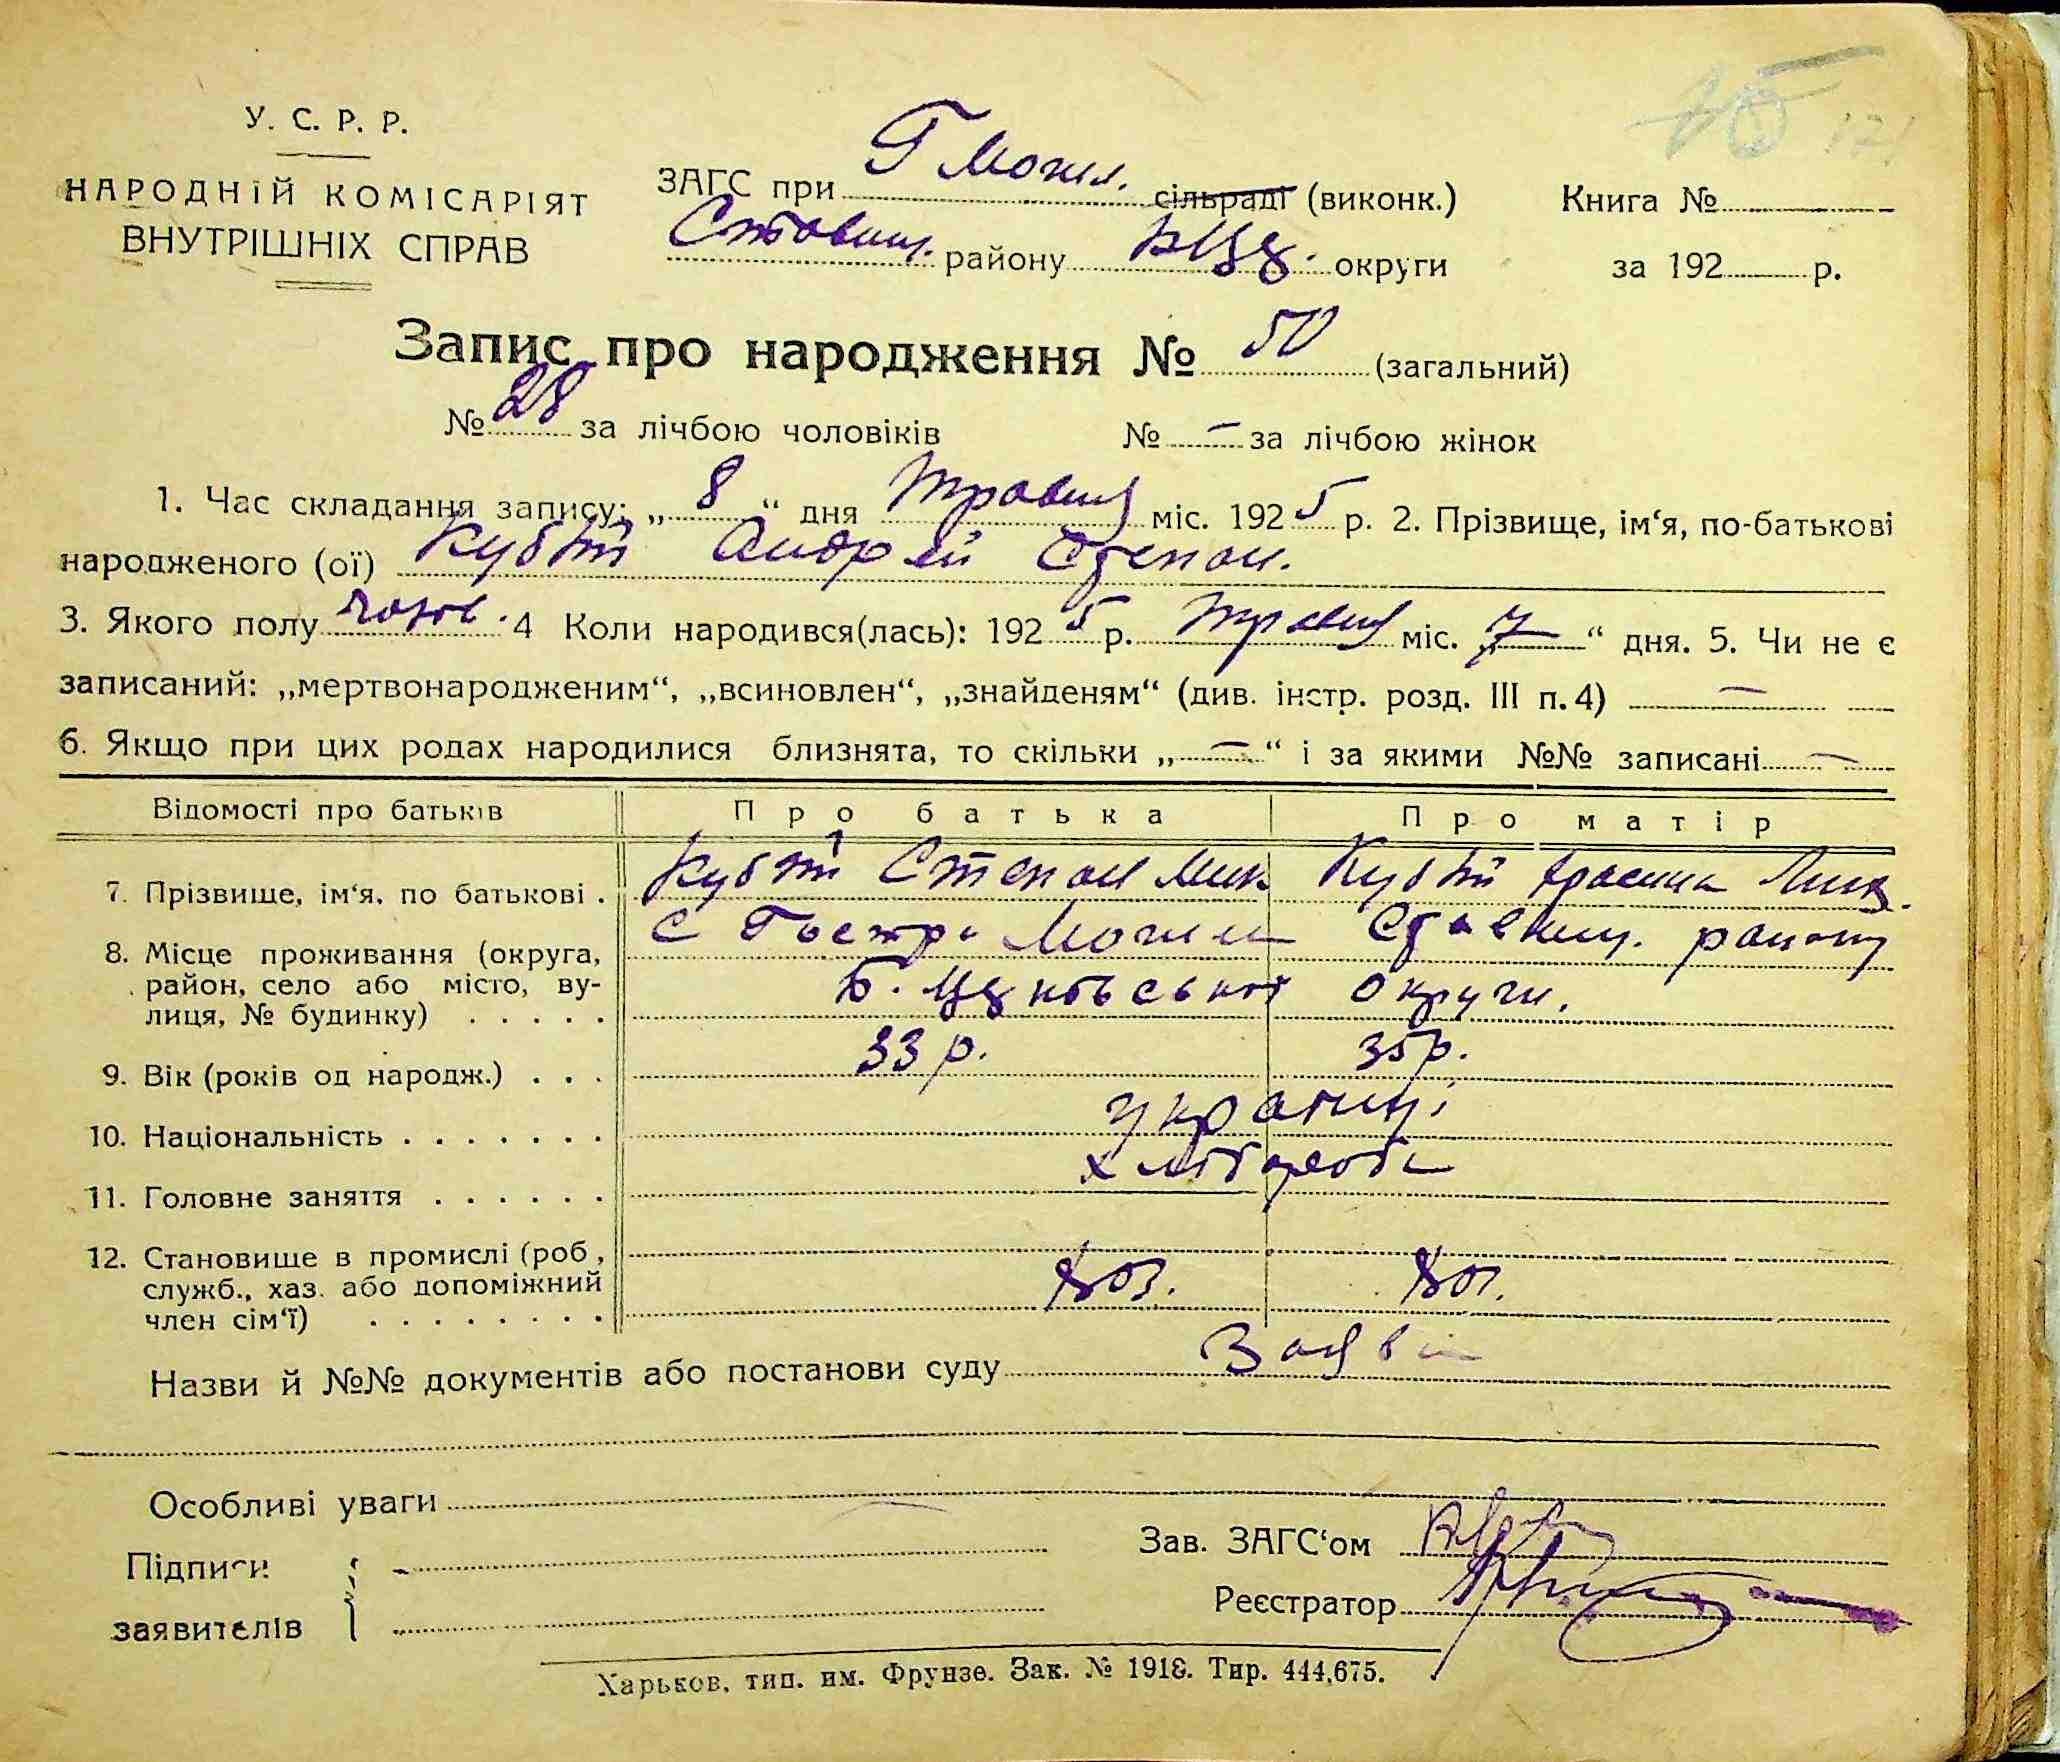 У. С. Р. Р.
НАРОДНІЙ КОМІСАРІЯТ
ВНУТРІШНІХ СПРАВ
ЗАГС при Г Могил. сільраді (виконк.)
Ставищ. району БЦц. округи
Книга №
за 192 р.
Запис про народження № 50 (загальний)
№ 28 за лічбою чоловіків № – за лічбою жінок
1. Час складання запису: „ 8 “ дня травня міс. 1925 р. 2. Прізвище, ім‘я, по-батькові
народженого (ої) Андрій Степан.
3. Якого полу чолов. 4 Коли народився(лась): 1925 р. травня міс. „ 7 “ дня. 5. Чи не є
записаний: „мертвонародженим“, „всиновлен“, „знайденям“ (див. інстр. розд. III п. 4) –
6. Якщо при цих родах народилися близнята, то скільки „ – “ і за якими №№ записані –
Відомості про батьків Про батька Про матір
7. Прізвище, ім‘я, по батькові . Степан Мик
8. Місце проживання (округа, район, село або місто, вулиця, № будинку) . . . . . с Гостра Могила Ставищ. району
Б. Церковської округи.
9. Вік (років од народж.) . . . 33 р. 35 р.
10. Національність . . . . . . . українці
11. Головне заняття . . . . . . хлібороби
12. Становище в промислі (роб,
служб., хаз. або допоміжний
член сім‘ї) . . . . . . . .
Назви й №№ документів або постанови суду Заява
Особливі уваги –
Підписи
заявителів
Зав. ЗАГС‘ом
Реєстратор
Харьков, тип. им. Фрунзе. Зак. № 1918. Тир. 444,675.